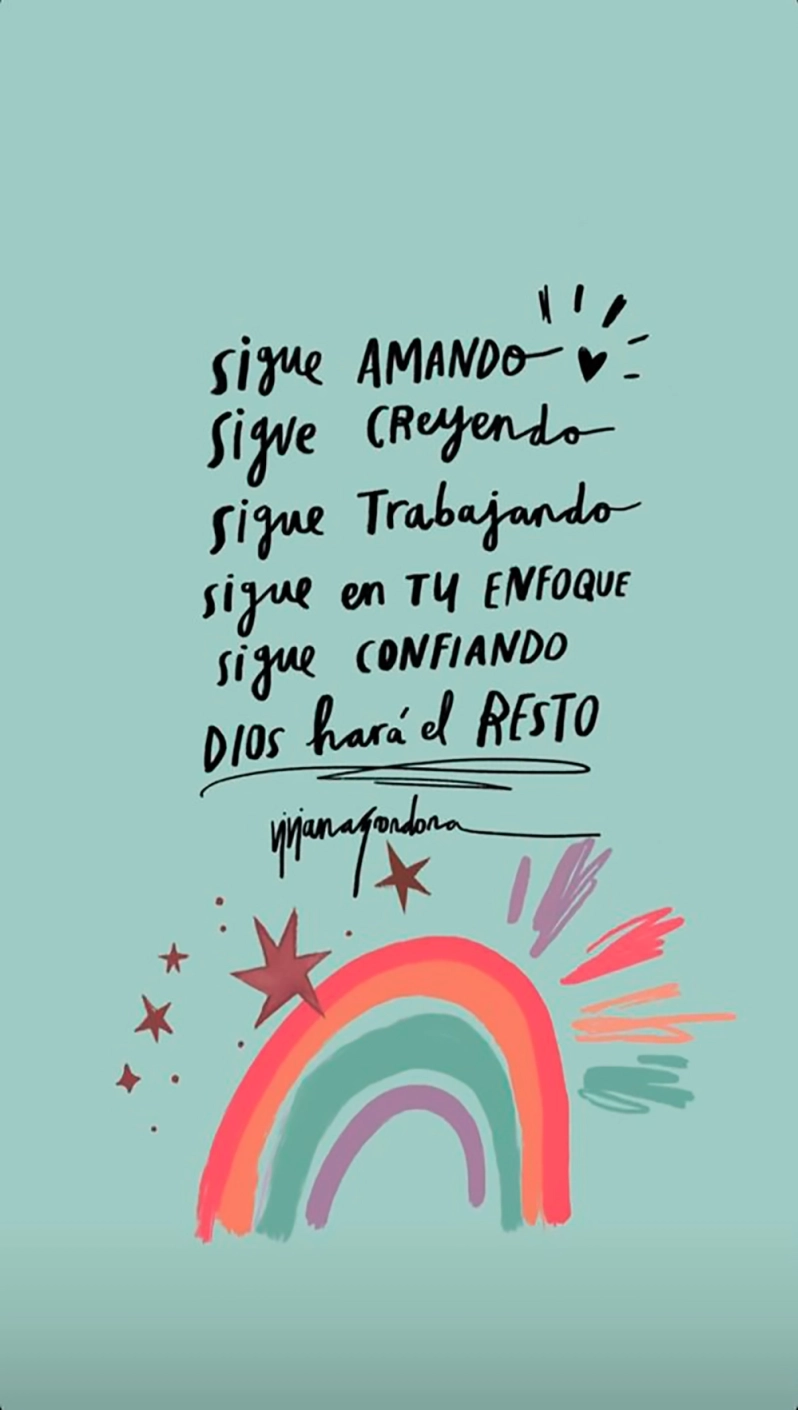 sigue AMANDO
sigve CReyendo
sigue Trabajando
sigue en TU ENFOQUE
sigue CONFIANDO
DIOS hará el RESTO